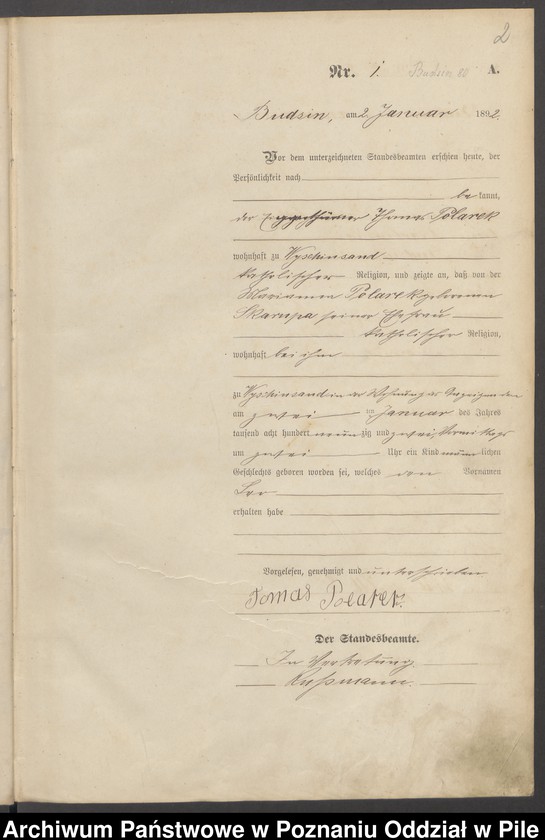 2
Nr. 1. Budsin A.
Budsin, am 2. Januar 1892.
Vor dem unterzeichneten Standesbeamten erschien heute, der
Persönlichkeit nach
bekannt,
der Thomas Polarek
wohnhaft zu Wyschinsand
katholischer Religion, und zeigte an, daß von der
Marianna Polarek geborenen
Skarupa seiner Ehefrau
katholischer Religion,
wohnhaft bei ihm
zu Wyschinsand in der Wohnung des Anzeigenden
am zwei ten Januar des Jahres
tausend acht hundert neunzig und zwei Vormittags
um zwei Uhr ein Kind männlichen
Geschlechts geboren worden sei, welches den Vornamen
Leo
erhalten habe
Vorgelesen, genehmigt und unterschrieben
Tomas Polarek.
Der Standesbeamte.
In Vertretung
Archiwum Państwowe w Poznaniu Oddział w Pile